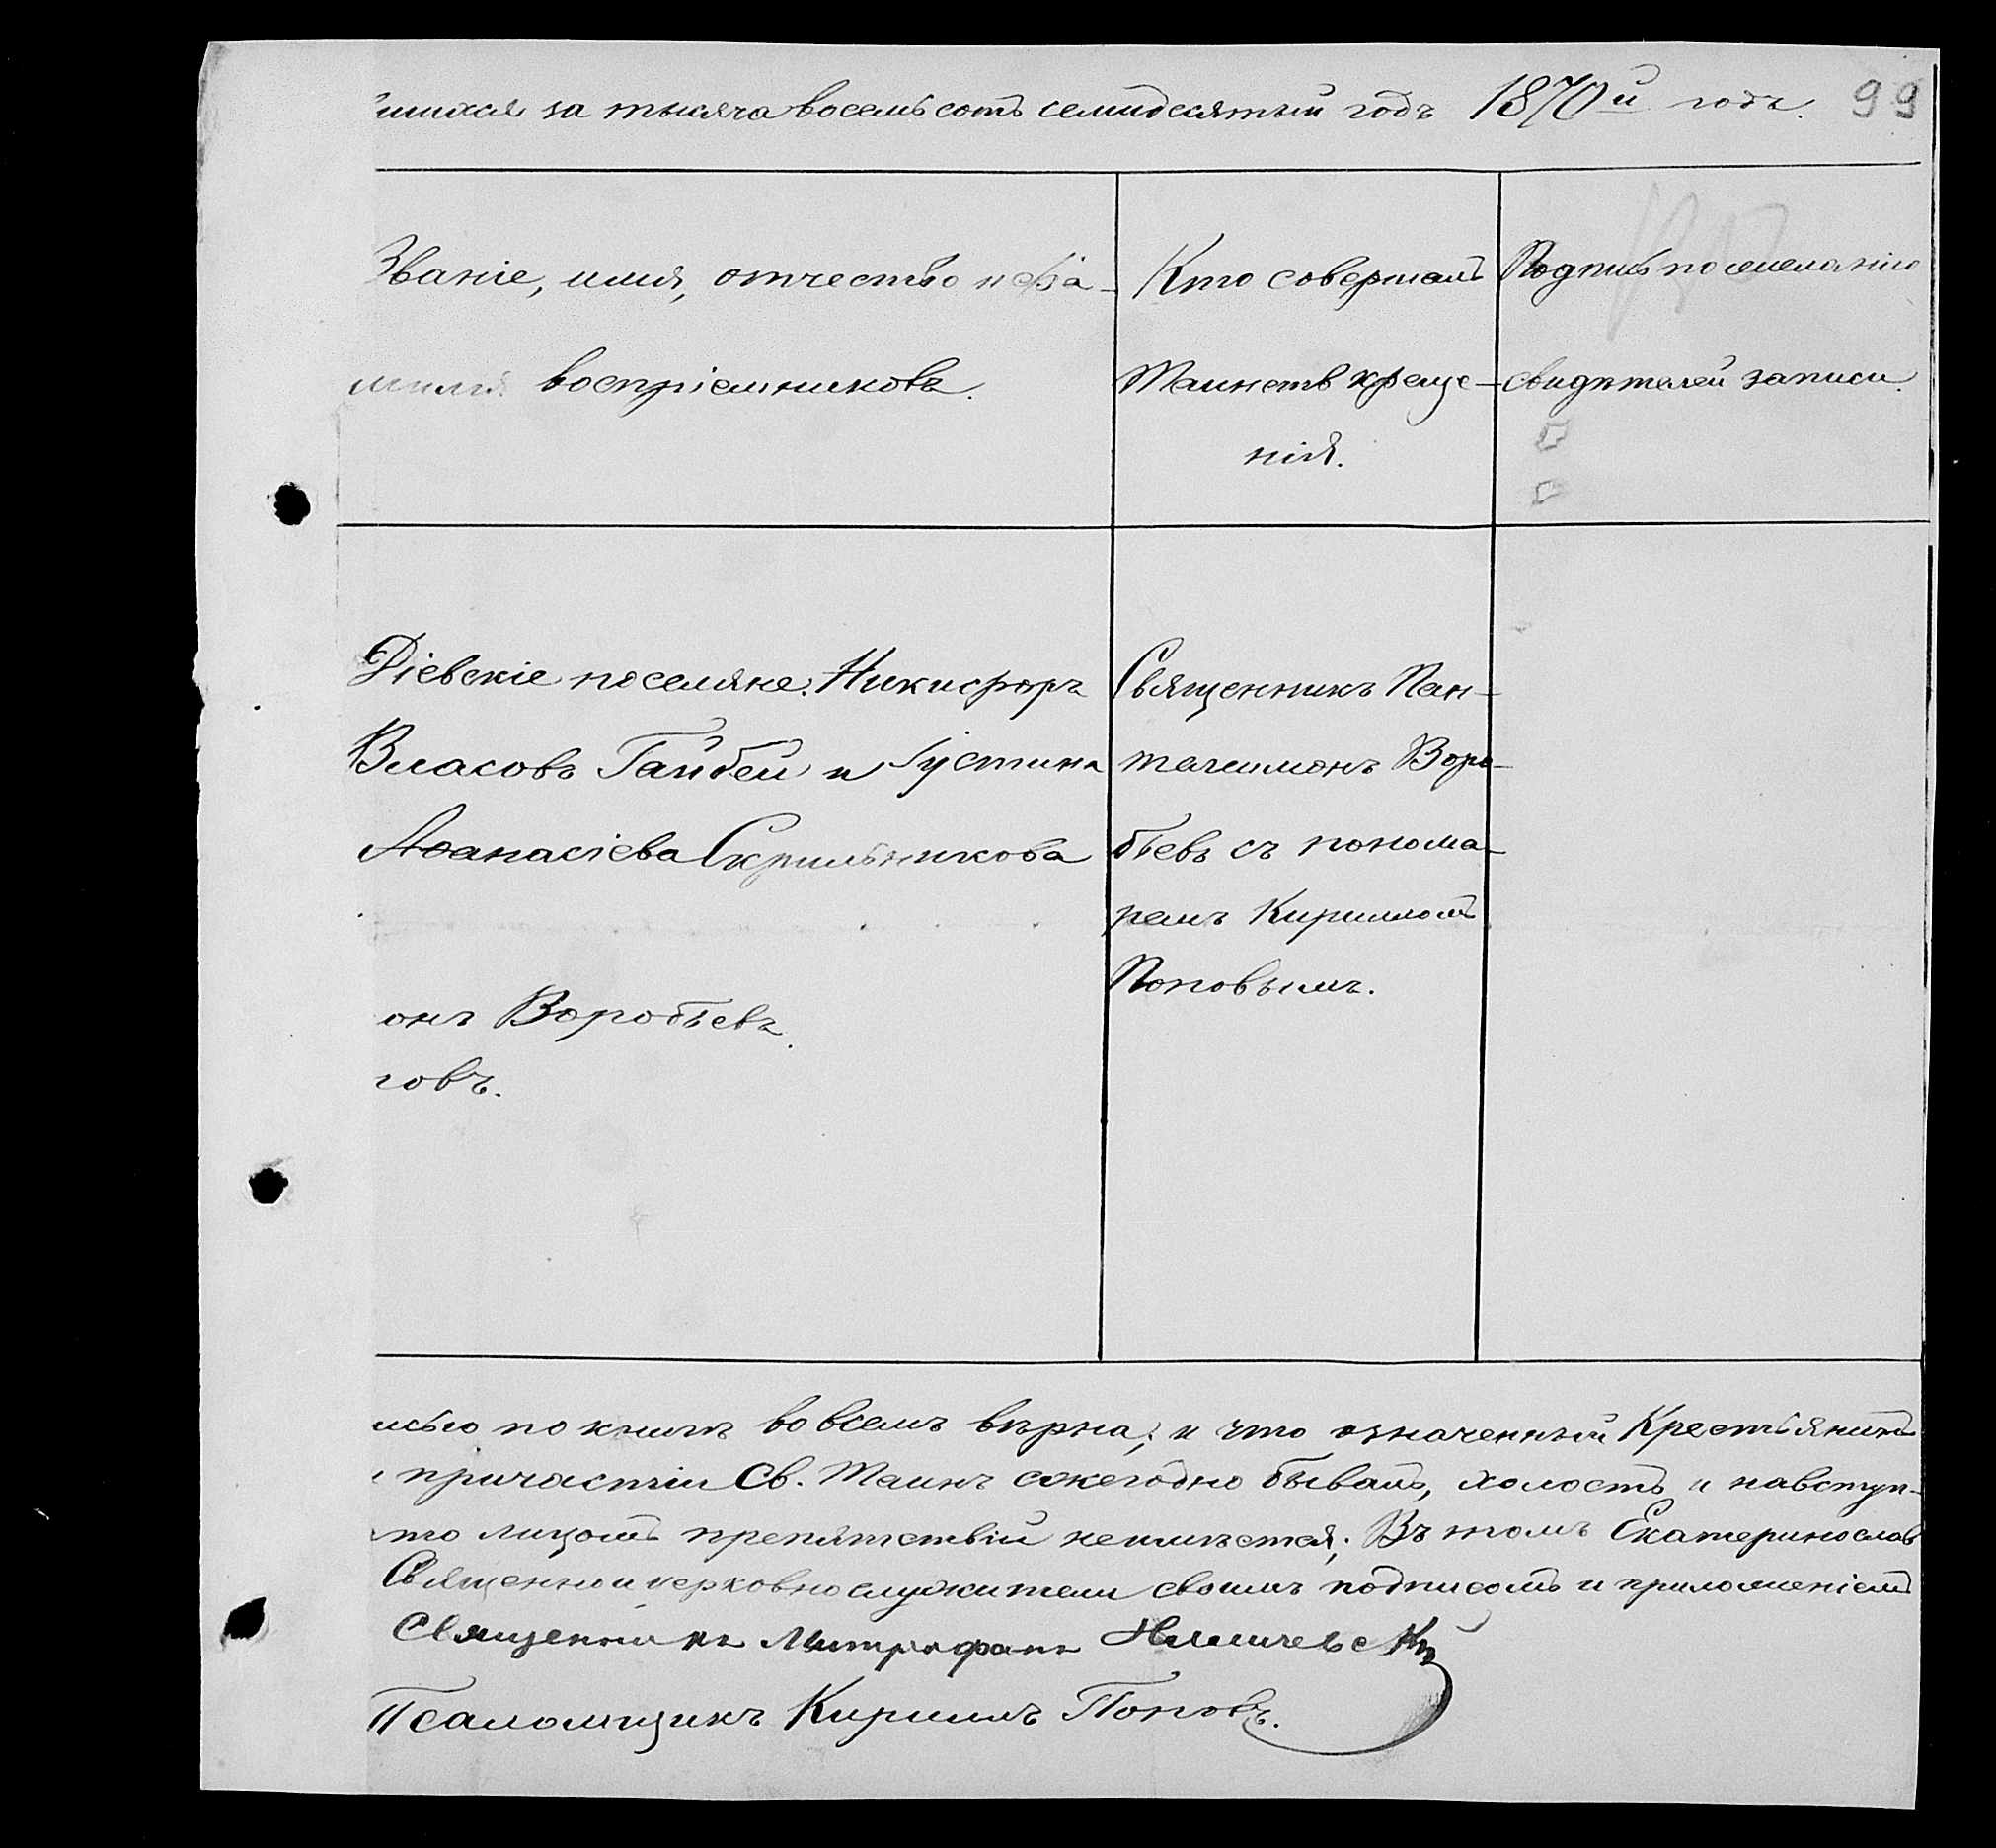 шихся за тысяча восемьсотъ семидесятый годъ 1870й годъ. 99
Званіе, имя, отчество и фа-
милія воспріемниковъ.
Кто совершалъ
Таинств креще-
нія.
Подпись по желанію
свидѣтелей записи.
Діевскіе поселяне: Никифоръ
Власовъ Гайбей и Іустина
Аѳанасіева Скрильникова
онъ Воробьевъ.
говъ.
Священникъ Пан-
телимонъ Воро-
бьевъ съ понома-
ремъ Кирилломъ
Поповымъ.
исью по книгѣ во всемъ вѣрна; и что означенный Крестьянинъ
причастіи Св. Таинъ ежегодно бывалъ, холостъ и навступ-
то лицомъ препятствій неимѣется; Въ томъ Екатеринослав
Священно и церковнослужители своимъ подписомъ и приложеніемъ
Священникъ Митрофанъ
Псаломщикъ Кириллъ Поповъ.